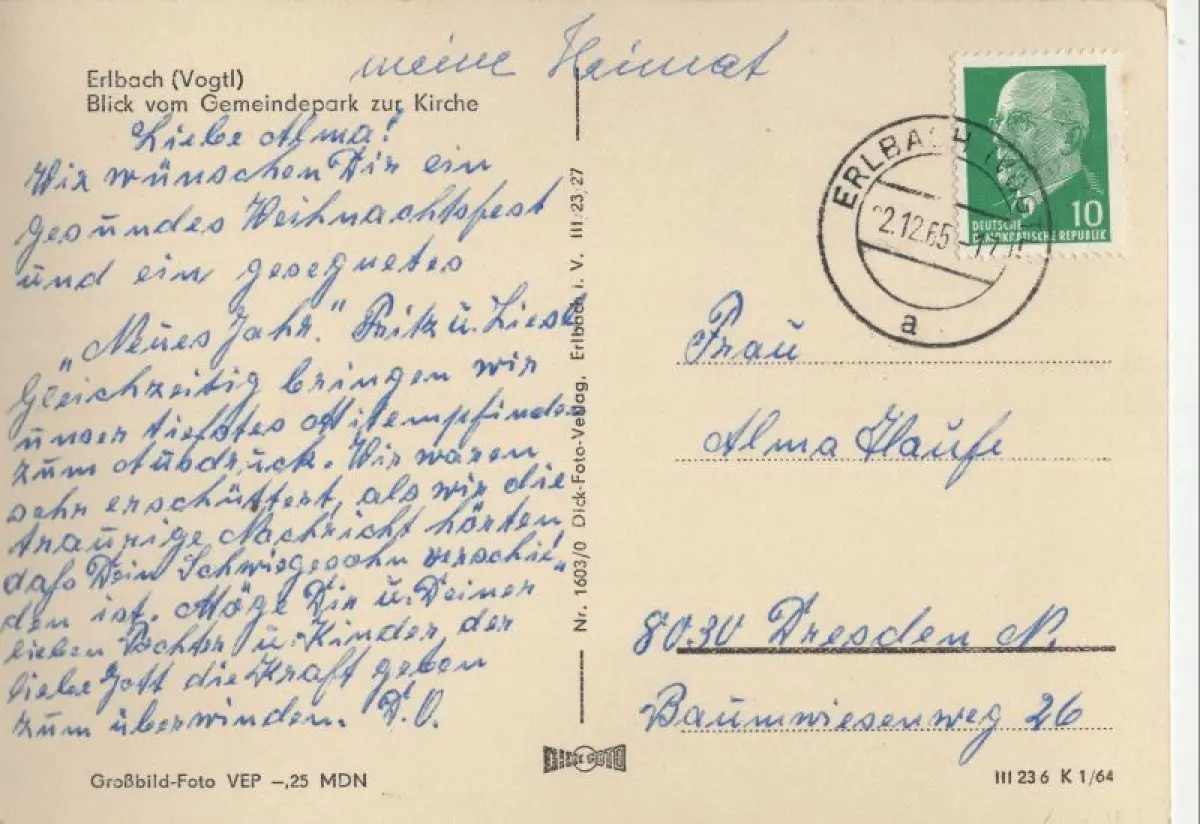 meine Heimat
Erlbach (Vogtl)
Blick vom Gemeindepark zur Kirche
Liebe Alma!
Wir wünschen Dir ein
gesundes Weihnachtsfest
und ein gesegnetes
„Neues Jahr." Fritz u. Liesl
Gleichzeitig bringen wir
unser tiefstes Mitempfinden
zum Ausdruck. Wir waren
sehr erschüttert, als wir die
traurige Nachricht hörten,
dass Dein Schwiegersohn verschie„
den ist. Möge Dir u. Deiner
lieben Tochter u. Kinder, der
liebe Gott die Kraft geben
zum überwinden. D.O.
Großbild-Foto VEP –,25 MDN
Nr. 1603/0 Dick-Foto-Verlag, Erlbach i. V. III 23 27
DICK FOTO
ERLBACH (VOGTL)
2.12.65
a
10
DEUTSCHE
DEMOKRATISCHE REPUBLIK
Frau
Alma Haufe
8030 Dresden N.
Baumwiesenweg 26
III 23 6 K 1/64